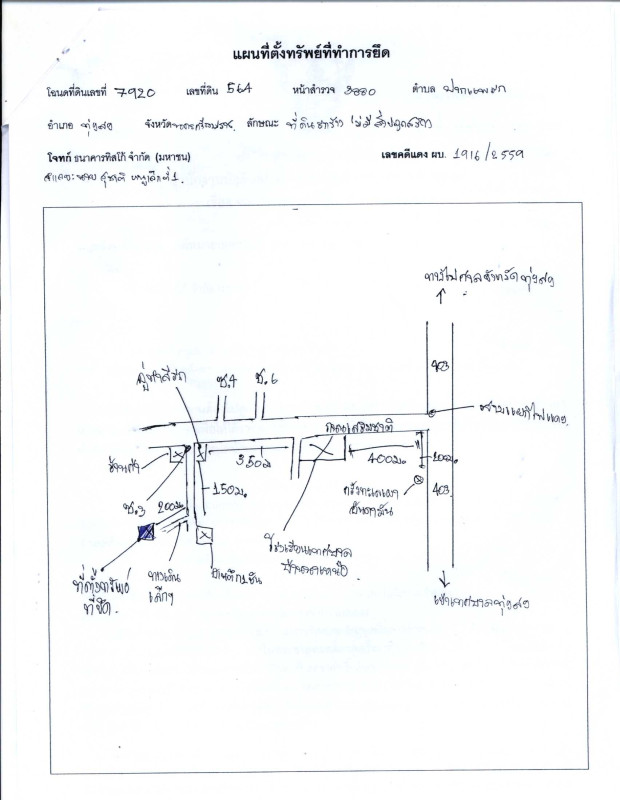 แผนที่ตั้งทรัพย์ที่ทำการยึด
โฉนดที่ดินเลขที่ 7920 เลขที่ดิน 564 หน้าสำรวจ 3880 ตำบล ปากแพรก
อำเภอ ทุ่งสง จังหวัด นครศรีธรรมราช ลักษณะ ที่ดินว่างเปล่า ไม่มีสิ่งปลูกสร้าง
โจทก์ ธนาคารทิสโก้ จำกัด (มหาชน) เลขคดีแดง ผบ. 1916/2559
จำเลย: นาย สุชาติ ที่ 1.
ทางไปศาลจังหวัดทุ่งสง
403
อู่ทำสีรถ
ซ.4
ซ.6
สามแยกไฟแดง
ถนนเสริมชาติ
ร้านค้า
350ม
400ม.
200ม.
403
ซ.3
200ม.
150ม.
โรงเรียนเทศบาล
บ้านนาเหนือ
ที่ตั้งทรัพย์
ที่ยึด.
ทางเดิน
เล็กๆ
บ้านตึก 2 ชั้น
เข้าเทศบาลทุ่งสง